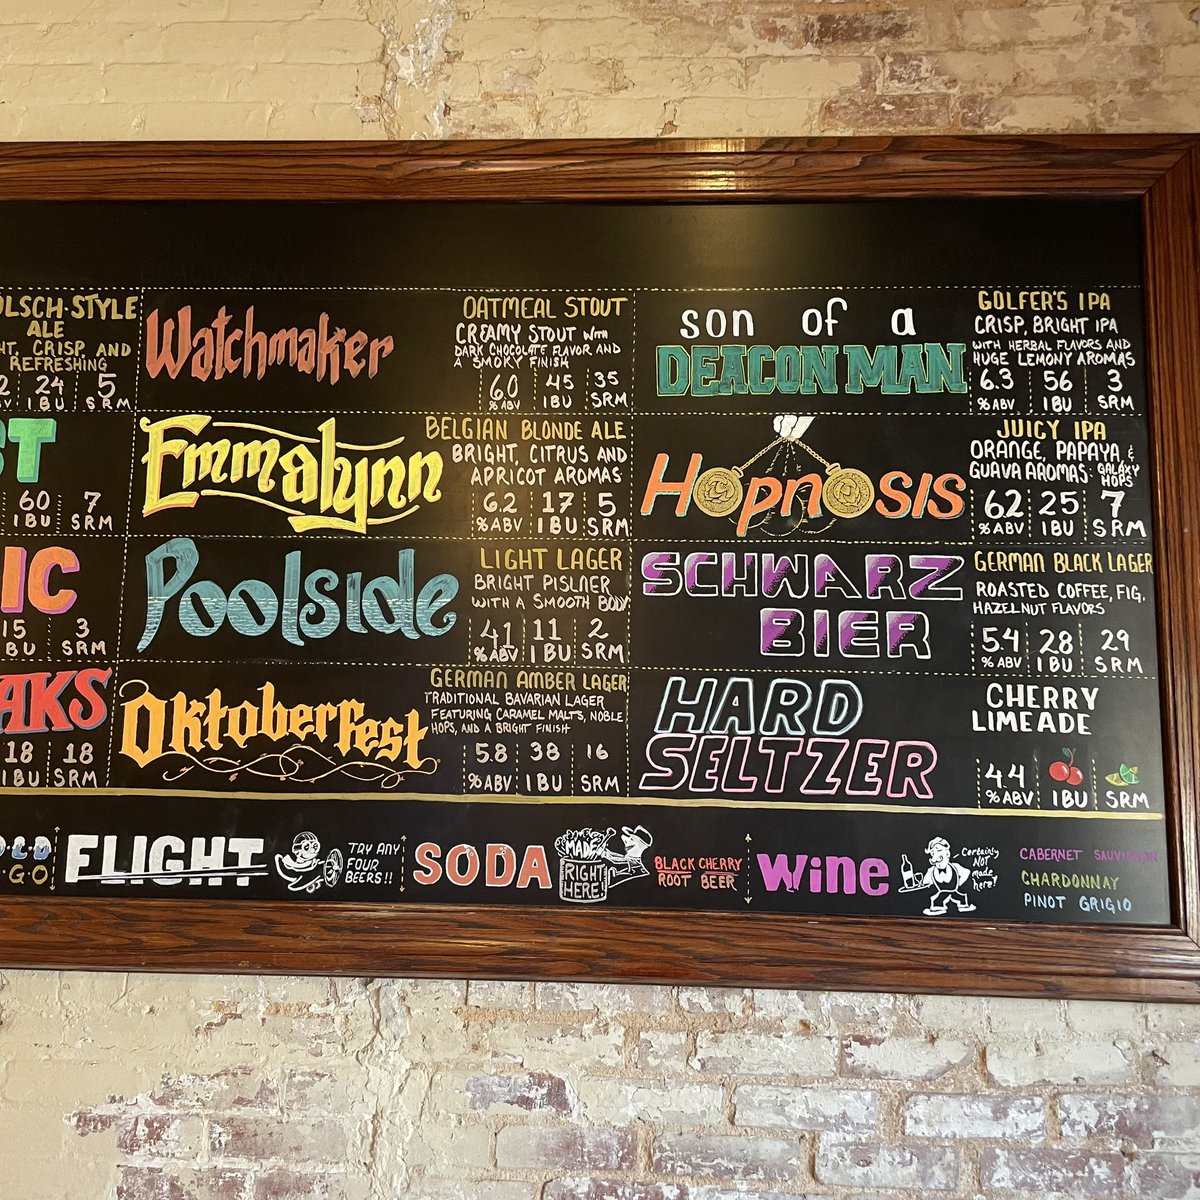 ÖLSCH-STYLE
ALE
CRISP, AND
REFRESHING
24
5
IBU
SRM
ST
60
7
IBU
SRM
IC
15
3
IBU
SRM
AKS
18
18
IBU
SRM
Watchmaker
OATMEAL STOUT
CREAMY STOUT WITH
DARK CHOCOLATE FLAVOR AND
A SMOKY FINISH
6.0
45
35
% ABV
IBU
SRM
Emmalynn
BELGIAN BLONDE ALE
BRIGHT, CITRUS AND
APRICOT AROMAS
6.2
17
5
% ABV
IBU
SRM
Poolside
LIGHT LAGER
BRIGHT PISLNER
WITH A SMOOTH BODY
4.1
11
2
% ABV
IBU
SRM
Oktoberfest
GERMAN AMBER LAGER
TRADITIONAL BAVARIAN LAGER
FEATURING CARAMEL MALTS, NOBLE
HOPS, AND A BRIGHT FINISH
5.8
38
16
% ABV
IBU
SRM
son of a
DEACON MAN
GOLFER'S IPA
CRISP, BRIGHT IPA
WITH HERBAL FLAVORS AND
HUGE LEMONY AROMAS
6.3
56
3
% ABV
IBU
SRM
HOpnOSIS
JUICY IPA
ORANGE, PAPAYA, &
GUAVA AROMAS. GALAXY
HOPS
6.2
25
7
% ABV
IBU
SRM
SCHWARZ
BIER
GERMAN BLACK LAGER
ROASTED COFFEE, FIG,
HAZELNUT FLAVORS
5.4
28
29
% ABV
IBU
SRM
HARD
SELTZER
CHERRY
LIMEADE
4.4
% ABV
IBU
SRM
FLIGHT
TRY ANY
FOUR
BEERS!!
SODA
MADE
RIGHT
HERE!
BLACK CHERRY
ROOT BEER
Wine
Certainly
NOT
made
here!
CABERNET SAUVIGNON
CHARDONNAY
PINOT GRIGIO